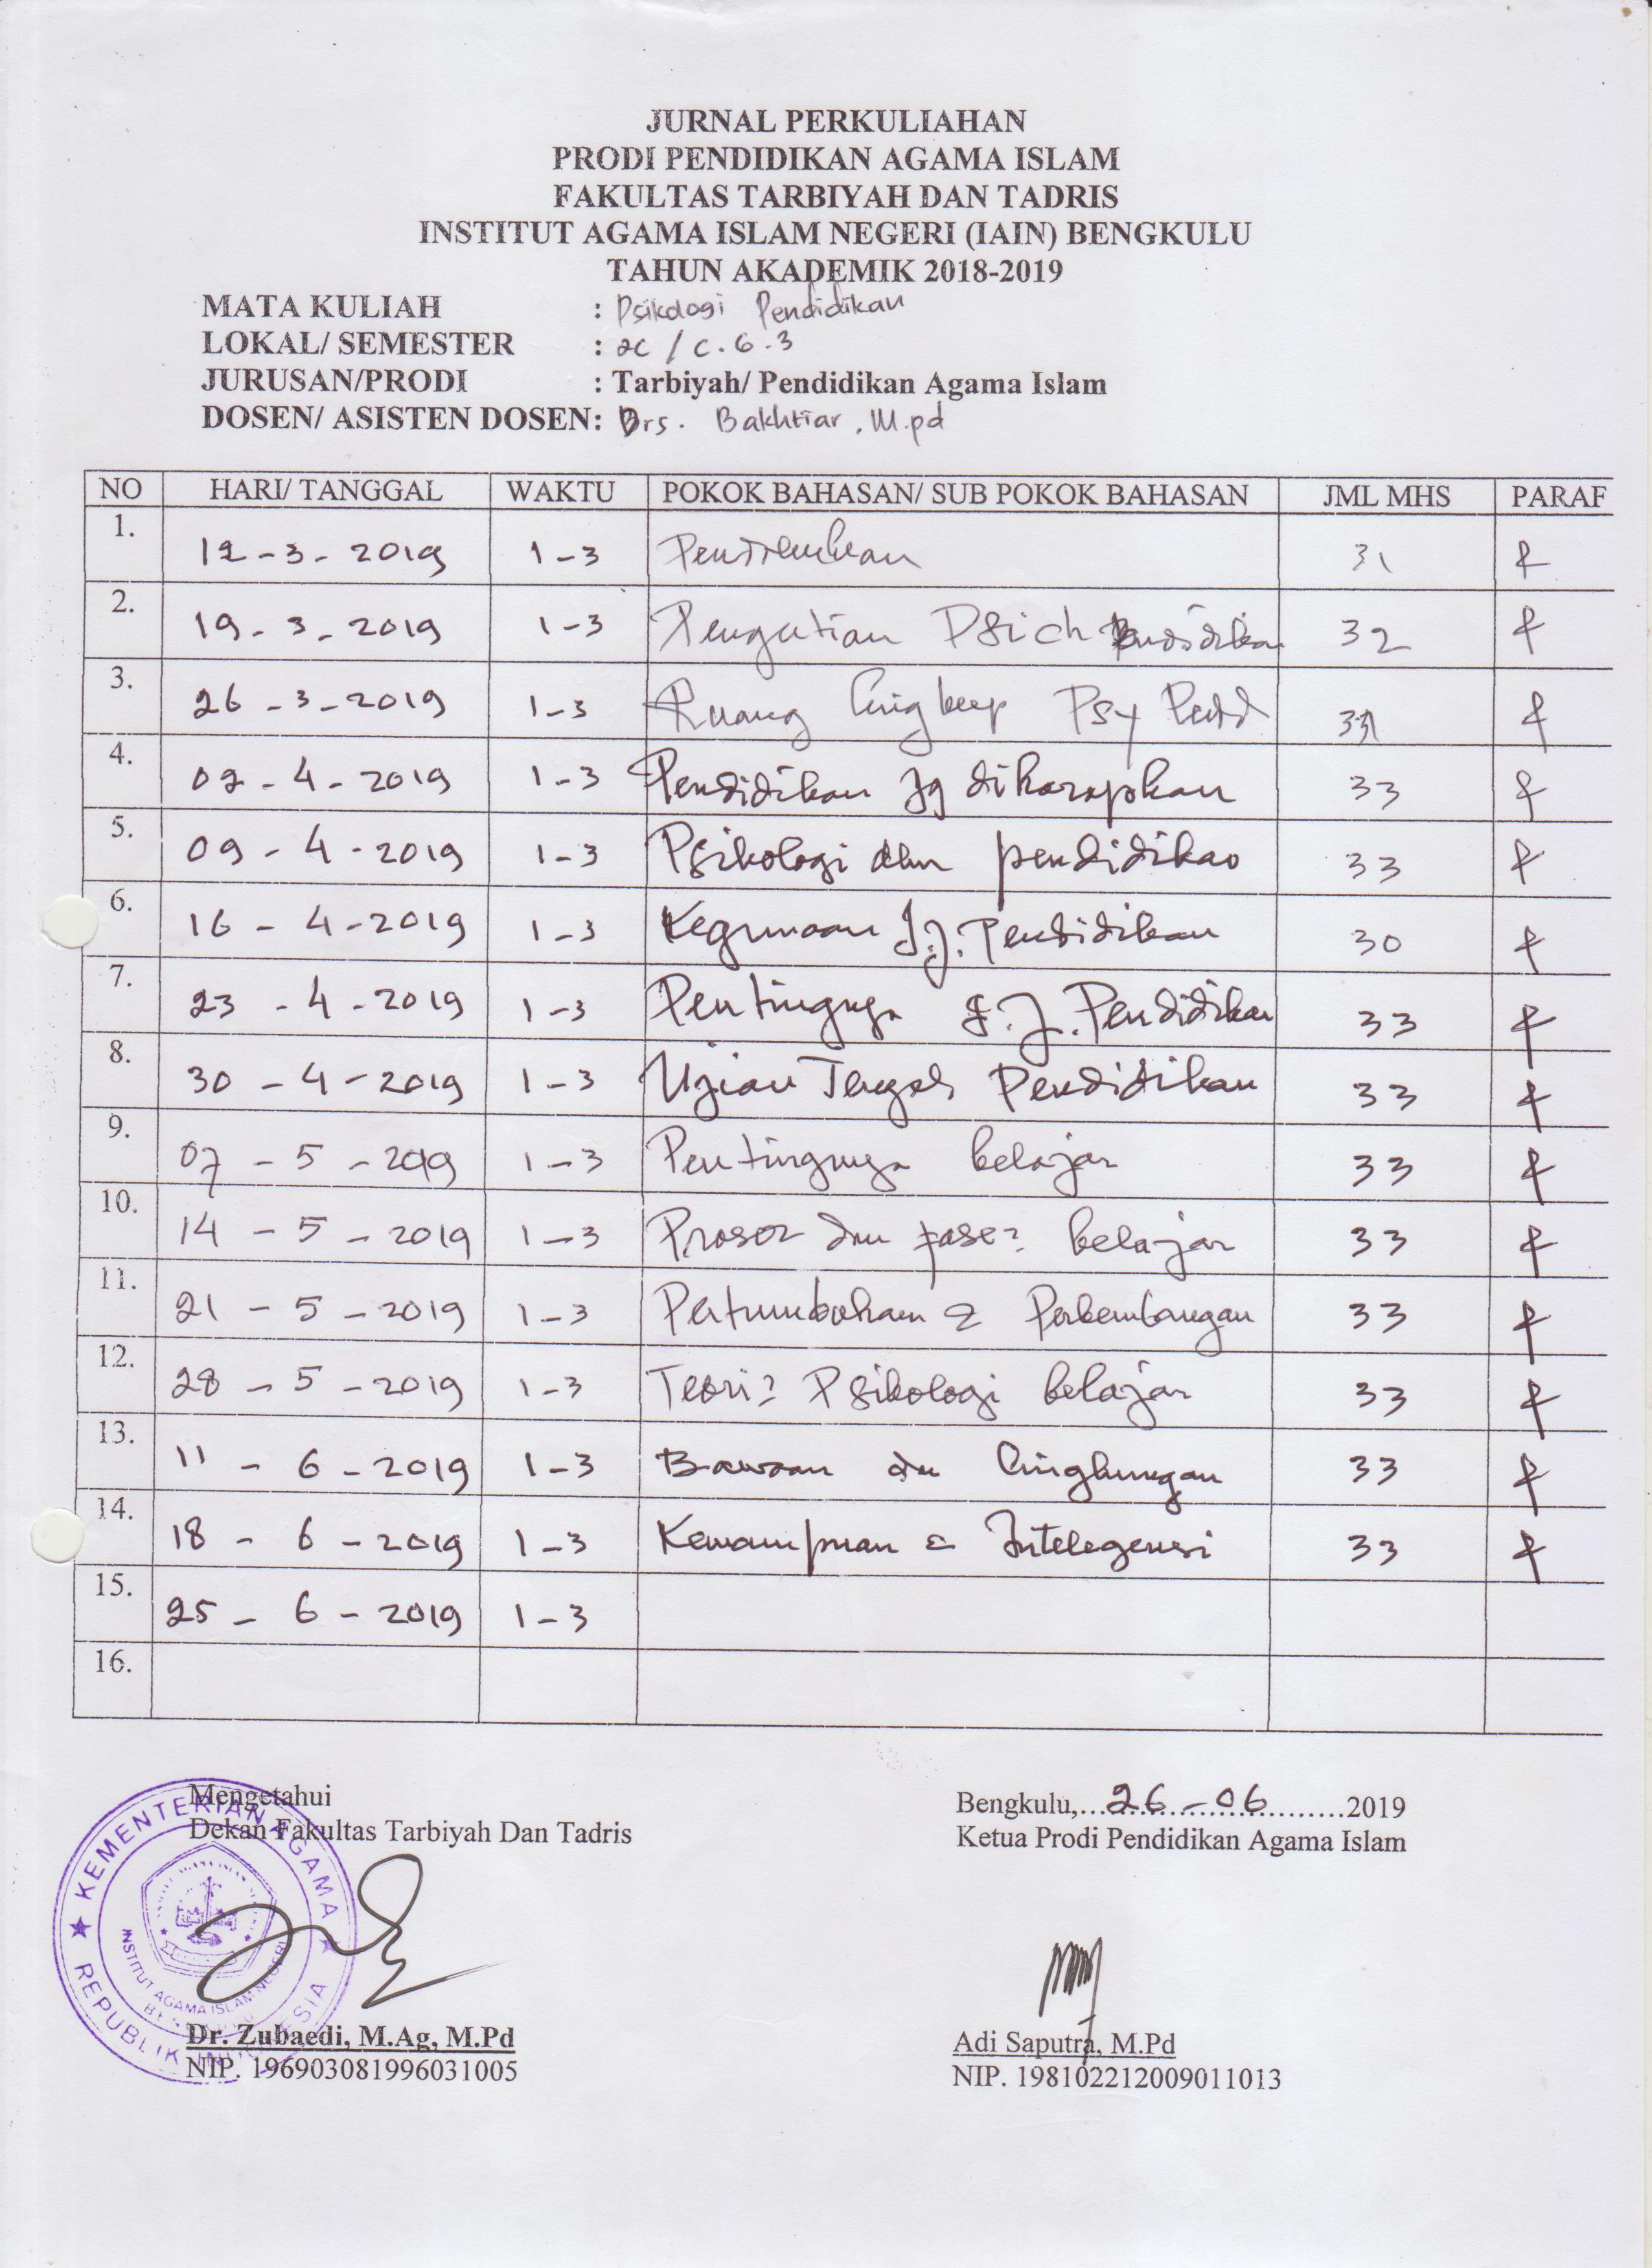 JURNAL PERKULIAHAN
PRODI PENDIDIKAN AGAMA ISLAM
FAKULTAS TARBIYAH DAN TADRIS
INSTITUT AGAMA ISLAM NEGERI (IAIN) BENGKULU
TAHUN AKADEMIK 2018-2019
MATA KULIAH : Psikologi Pendidikan
LOKAL/ SEMESTER : 2C / C.6.3
JURUSAN/PRODI : Tarbiyah/ Pendidikan Agama Islam
DOSEN/ ASISTEN DOSEN: Drs. Bakhtiar, M.pd
NO HARI/ TANGGAL WAKTU POKOK BAHASAN/ SUB POKOK BAHASAN JML MHS PARAF
1. 12-3-2019 1-3 31
2. 19-3-2019 1-3 Pengertian Psich Pendidikan 32
3. 26-3-2019 1-3 Ruang Lingkup Psy Pendd
4. 02-4-2019 1-3 Pendidikan yg diharapkan 33
5. 09-4-2019 1-3 Psikologi dlm pendidikan 33
6. 16-4-2019 1-3 Kegunaan I.J. Pendidikan 30
7. 23-4-2019 1-3 Pentingnya I.J. Pendidikan 33
8. 30-4-2019 1-3 Ujian Tengah Pendidikan 33
9. 07-5-2019 1-3 Pentingnya belajar 33
10. 14-5-2019 1-3 Proses dan fase2 belajar 33
11. 21-5-2019 1-3 Pertumbuhan & Perkembangan 33
12. 28-5-2019 1-3 Teori2 Psikologi belajar 33
13. 11-6-2019 1-3 Bawaan dn Lingkungan 33
14. 18-6-2019 1-3 Kemampuan & Intelegensi 33
15. 25-6-2019 1-3
16.
Mengetahui
Dekan Fakultas Tarbiyah Dan Tadris
Bengkulu,...26-06...2019
Ketua Prodi Pendidikan Agama Islam
KEMENTERIAN AGAMA
REPUBLIK INDONESIA
INSTITUT AGAMA ISLAM NEGERI
BENGKULU
Dr. Zubaedi, M.Ag, M.Pd
NIP. 196903081996031005
Adi Saputra, M.Pd
NIP. 198102212009011013